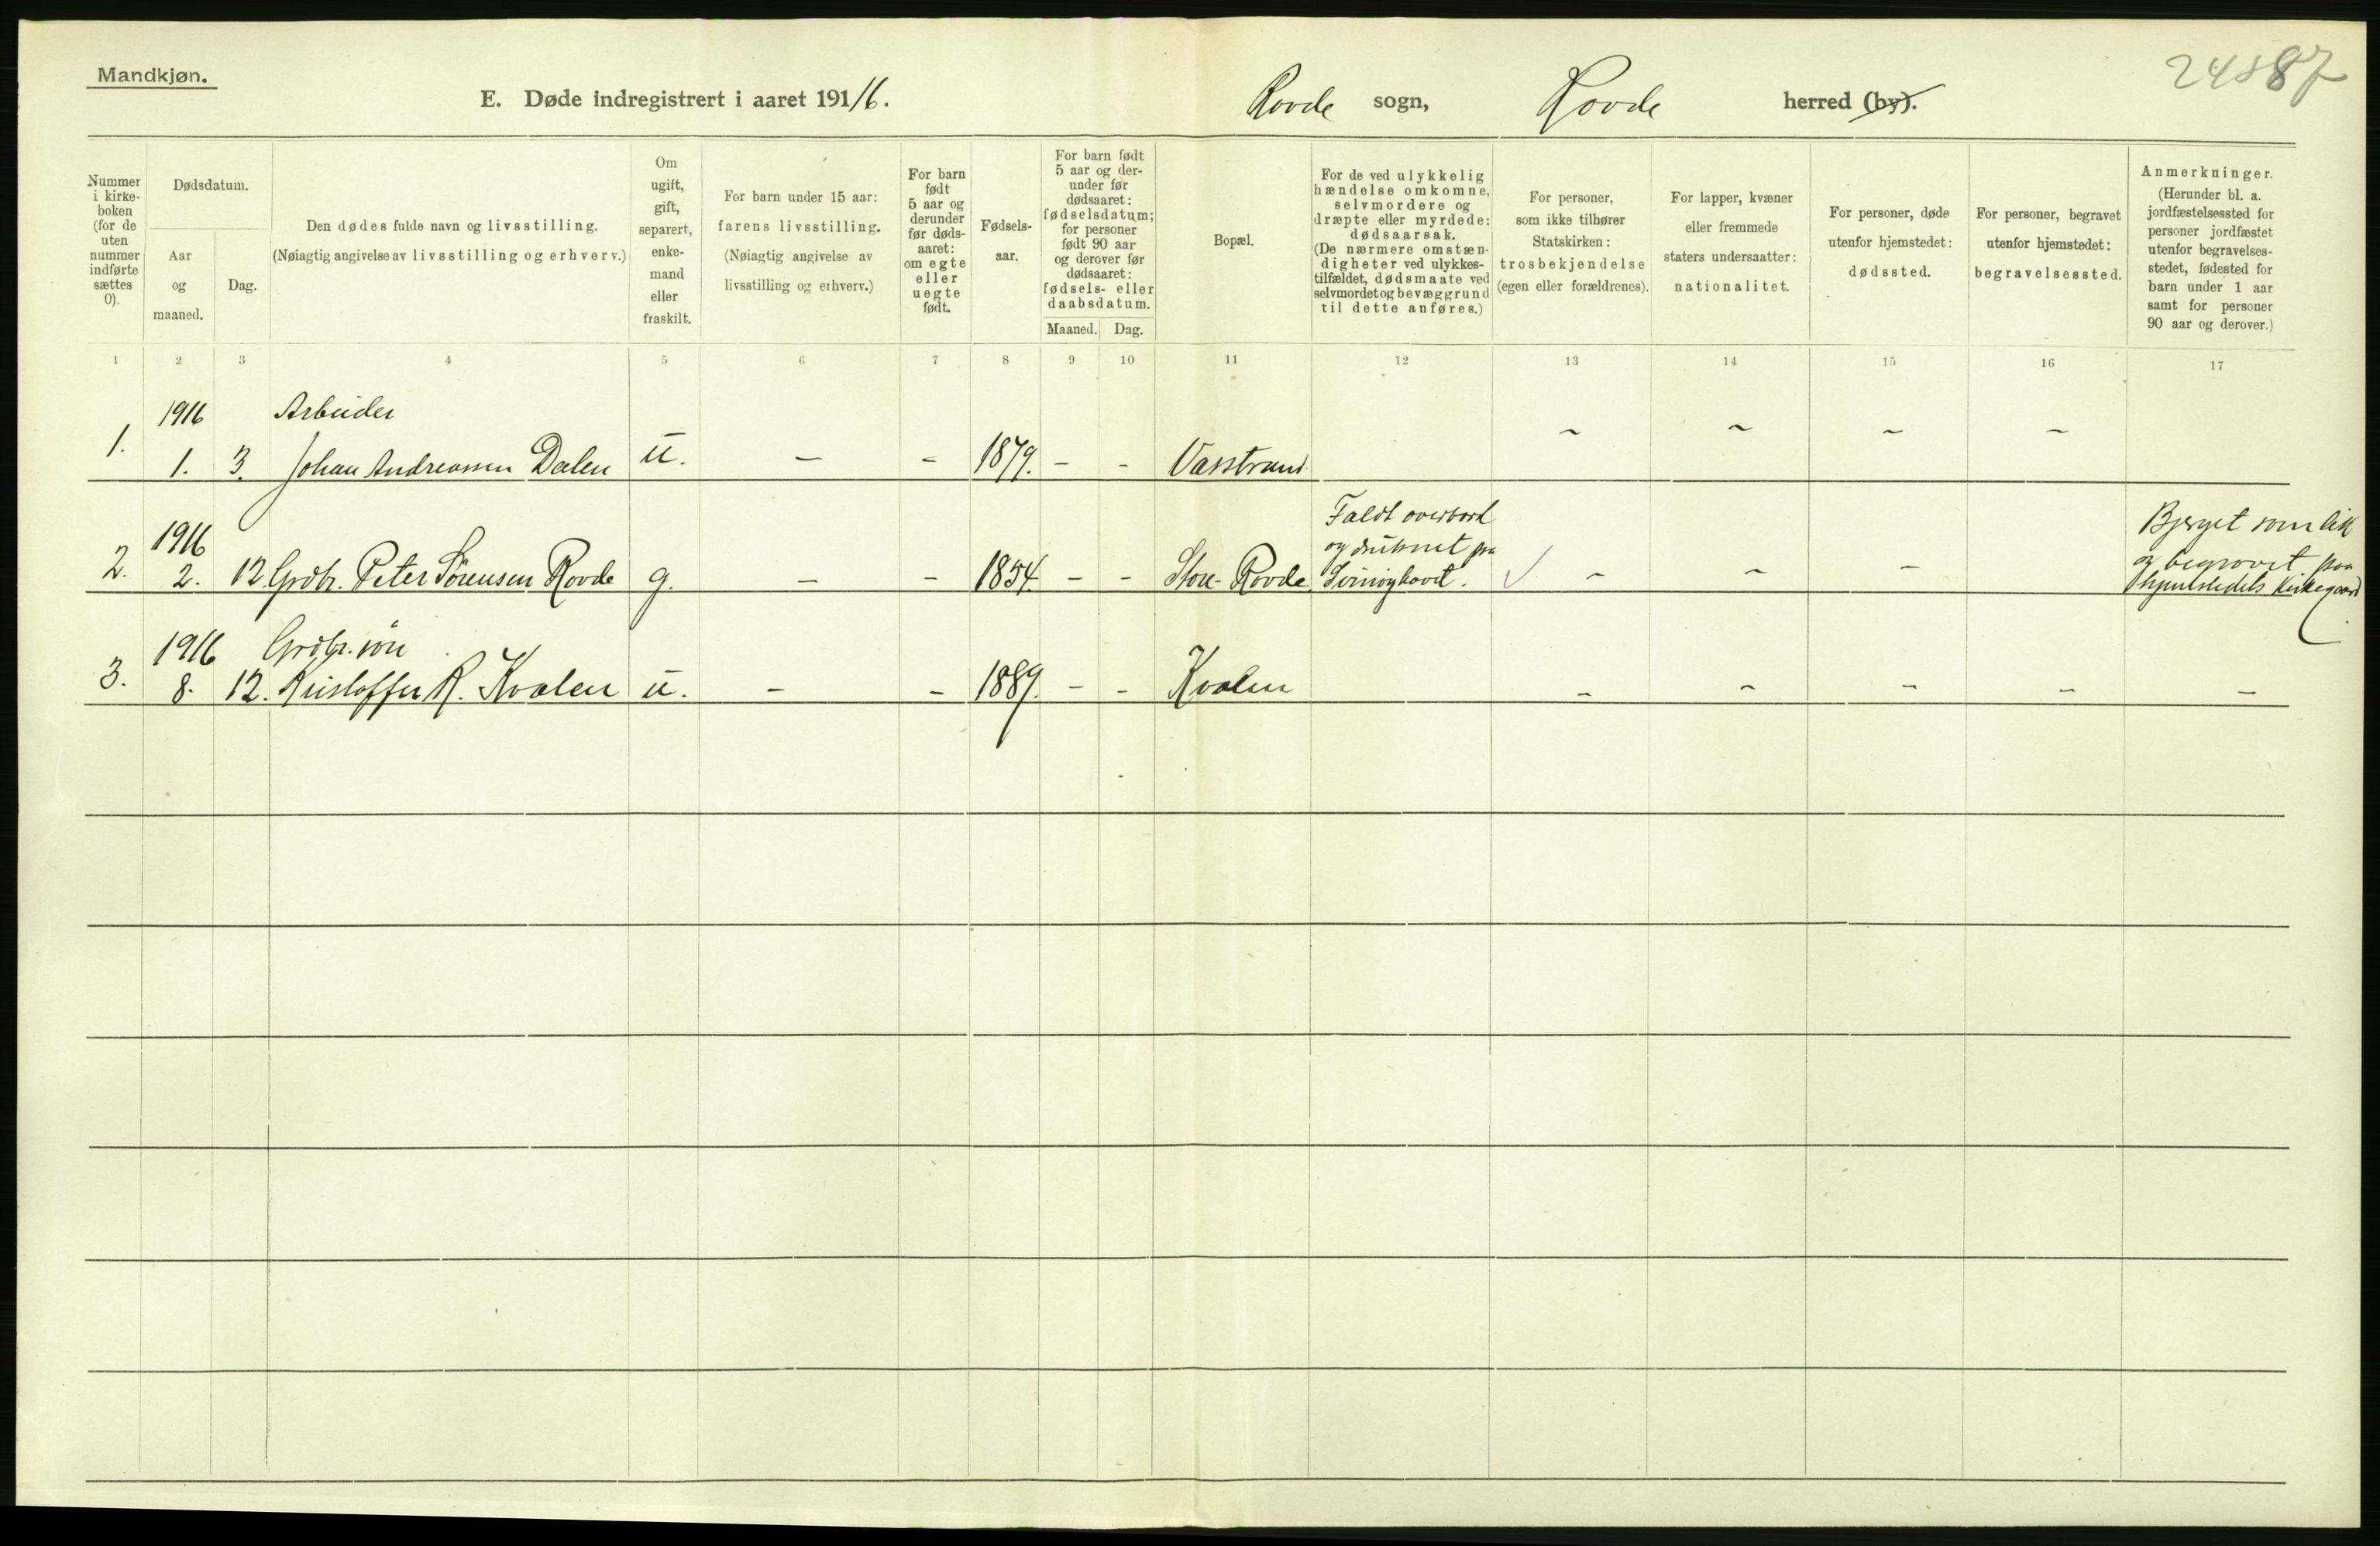 Mandkjøn.
24587
E. Døde indregistrert i aaret 191/6. Rovde sogn, Rovde herred (by).
Nummer i kirke-boken (for de uten nummer indførte sættes 0).
Dødsdatum.
Aar og maaned.
Dag.
Den dødes fulde navn og livsstilling.
(Nøiagtig angivelse av livsstilling og erhverv.)
Om ugift, gift, separert, enke-mand eller fraskilt.
For barn under 15 aar: farens livsstilling.
(Nøiagtig angivelse av livsstilling og erhverv.)
For barn født 5 aar og derunder før døds-aaret: om egte eller uegte født.
Fødsels-aar.
For barn født 5 aar og der-under før dødsaaret: fødselsdatum; for personer født 90 aar og derover før dødsaaret: fødsels- eller daabsdatum.
Maaned. Dag.
Bopæl.
For de ved ulykkelig hændelse omkomne, selvmordere og dræpte eller myrdede: dødsaarsak.
(De nærmere omstæn-digheter ved ulykkes-tilfældet, dødsmaate ved selvmordet og bevæggrund til dette anføres.)
For personer, som ikke tilhører Statskirken: trosbekjendelse (egen eller forældrenes).
For lapper, kvæner eller fremmede staters undersaatter: nationalitet.
For personer, døde utenfor hjemstedet: dødssted.
For personer, begravet utenfor hjemstedet: begravelsessted.
Anmerkninger.
(Herunder bl. a. jordfæstelsessted for personer jordfæstet utenfor begravelses-stedet, fødested for barn under 1 aar samt for personer 90 aar og derover.)
1 2 3 4 5 6 7 8 9 10 11 12 13 14 15 16 17
1916 Arbeider
1. 1. 3. Johan Andreassen Dalen u. - - 1879. - - Vasstrand - - - -
1916 Faldt overbord og druknet paa Svinøyhavet. Bjerget som lik og begravet paa hjemstedets kirkegaard.
2. 2. 12. Grdbr. Peter Sørensen Rovde g. - - 1854. - - Store-Rovde. ✓ - - -
1916 Grdbr. søn
3. 8. 12. Kristoffer R. Kvalen u. - - 1889. - - Kvalen - - - - -